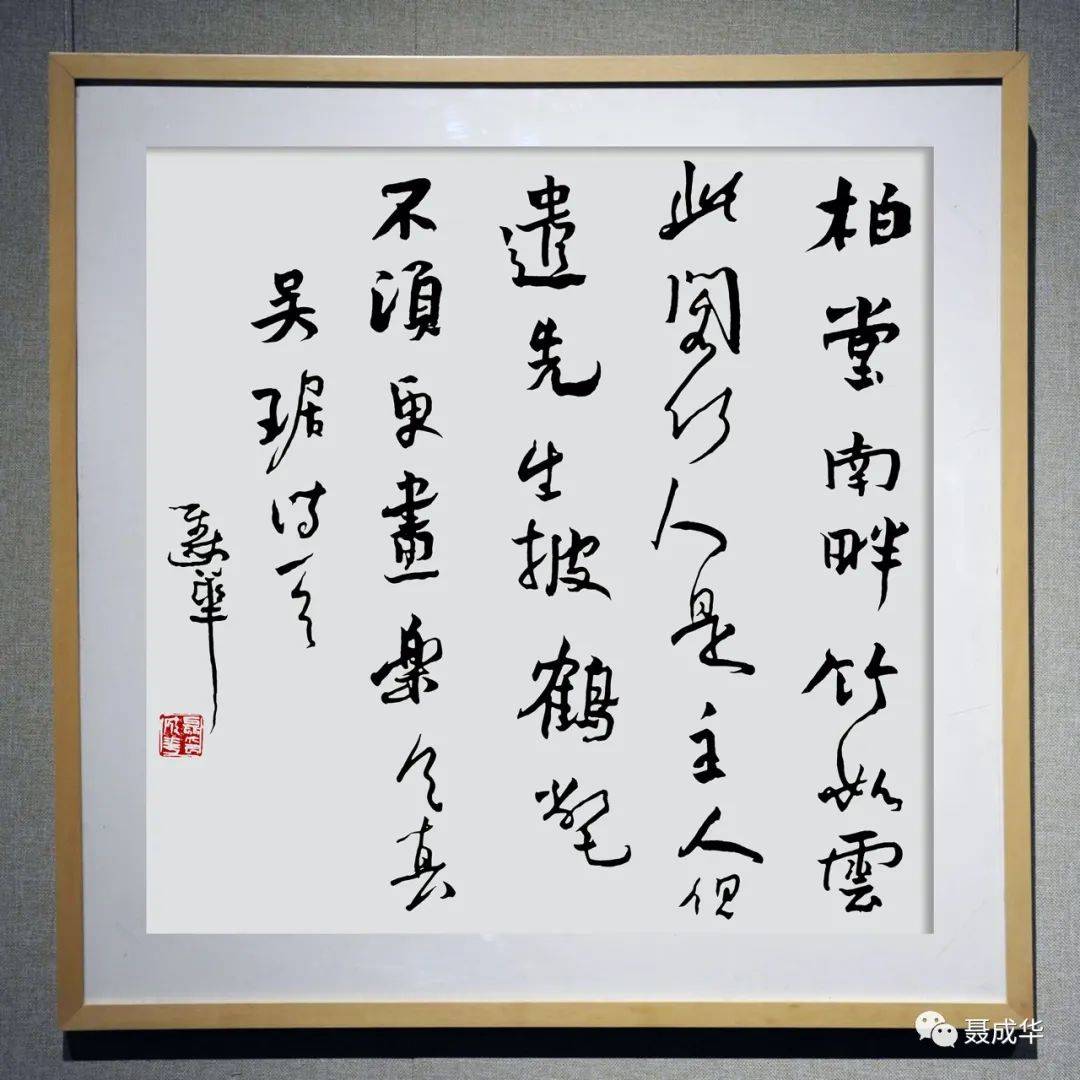 柏堂南畔竹如雲
此閣何人是主人但
遣先生披鶴氅
不須更畫樂天真
吴琚詩
華
聂成华